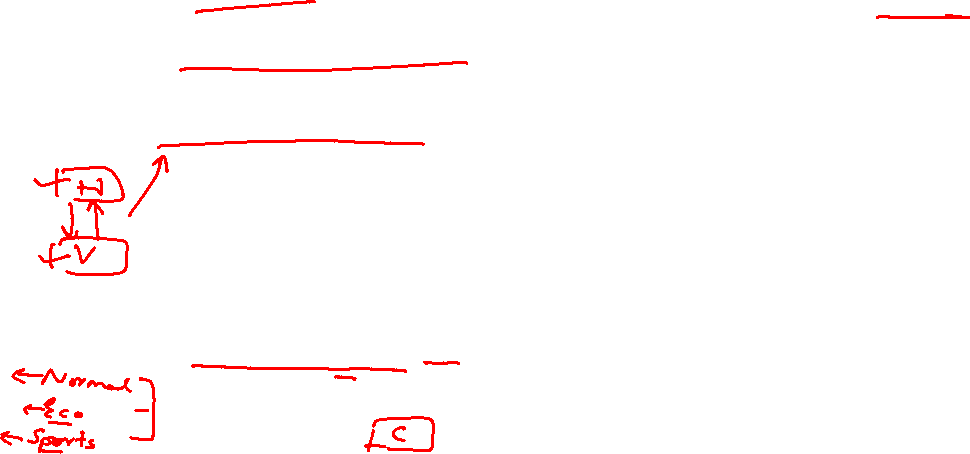 V
Normal
Eco
Sports
C